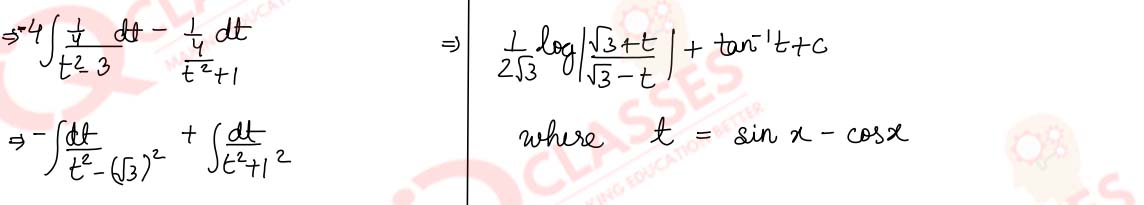 ⇒ -4∫ (1/4 dt)/(t² - 3) - (1/4 dt)/(t² + 1)
⇒ -∫ dt/(t² - (√3)²) + ∫ dt/(t² + 1²)
⇒ 1/(2√3) log|(√3 + t)/(√3 - t)| + tan⁻¹t + c
where t = sin x - cos x
CLASSES
MAKING EDUCATION BETTER